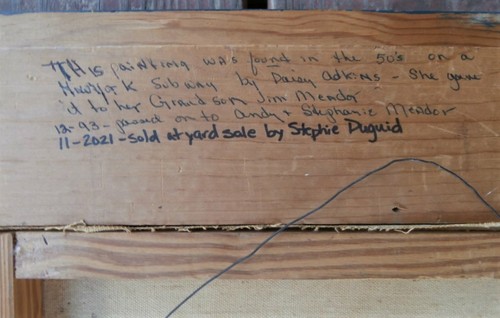 This painting was found in the 50's on a
Newyork Subway by Daisy Adkins - She gave
it to her Grandson Jim Meador
12-93- passed on to Andy + Stephanie Meador
11-2021-sold at yard sale by Stephie Duguid